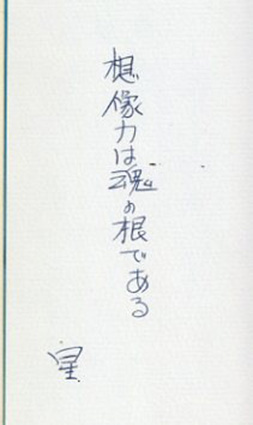 想像力は魂の根である
星